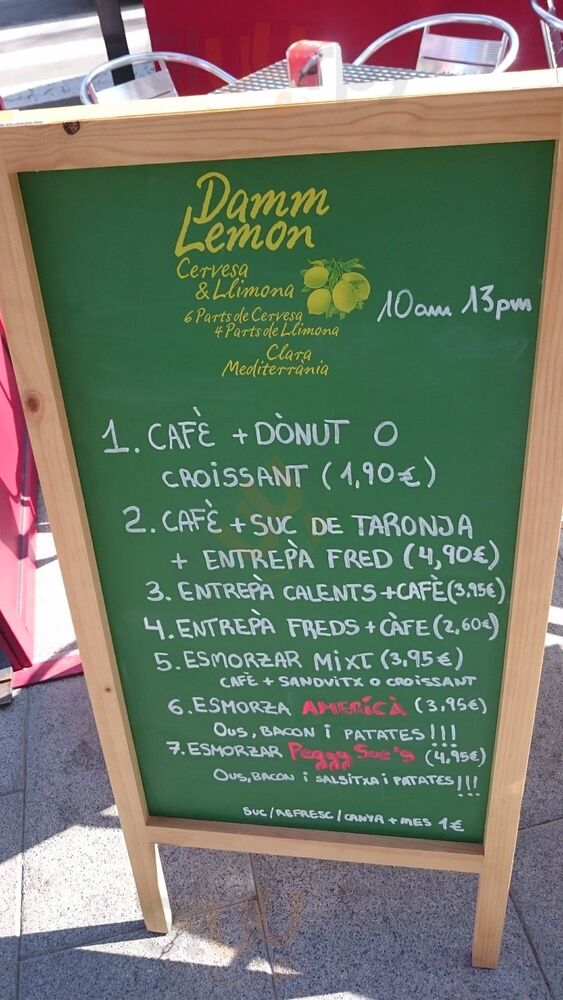 Damm
Lemon
Cervesa
& Llimona
6 Parts de Cervesa
4 Parts de Llimona
Clara
Mediterrània
10am 13pm
1. CAFÈ + DÒNUT O
CROISSANT (1,90€)
2. CAFÈ + SUC DE TARONJA
+ ENTREPÀ FRED (4,90€)
3. ENTREPÀ CALENTS + CAFÈ (3,95€)
4. ENTREPÀ FREDS + CÀFE (2,60€)
5. ESMORZAR MIXT (3,95€)
CAFÈ + SANDVITX O CROISSANT
6. ESMORZA AMERICÀ (3,95€)
OUS, BACON I PATATES!!!
7. ESMORZAR Peggy Sue's (4,95€)
OUS, BACON I SALSITXA I PATATES!!!
SUC/REFRESC/CANYA + MES 1€